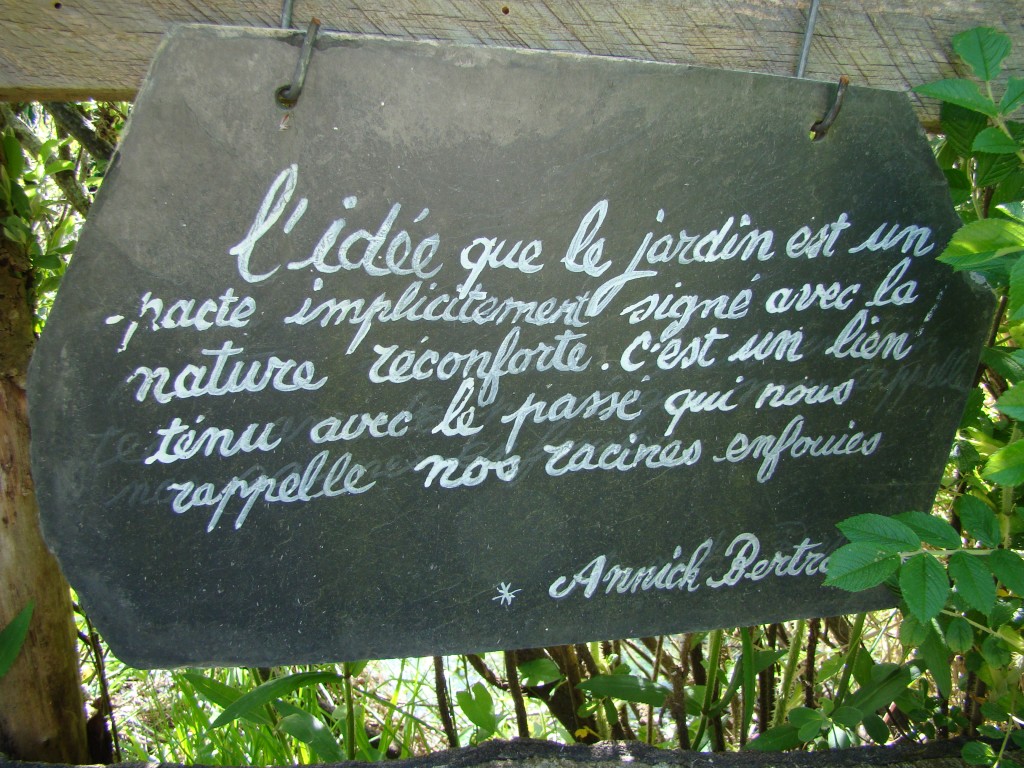 l'idée que le jardin est un
pacte implicitement signé avec la
nature réconforte. c'est un lien
ténu avec le passé qui nous
rappelle nos racines enfouies
* Annick